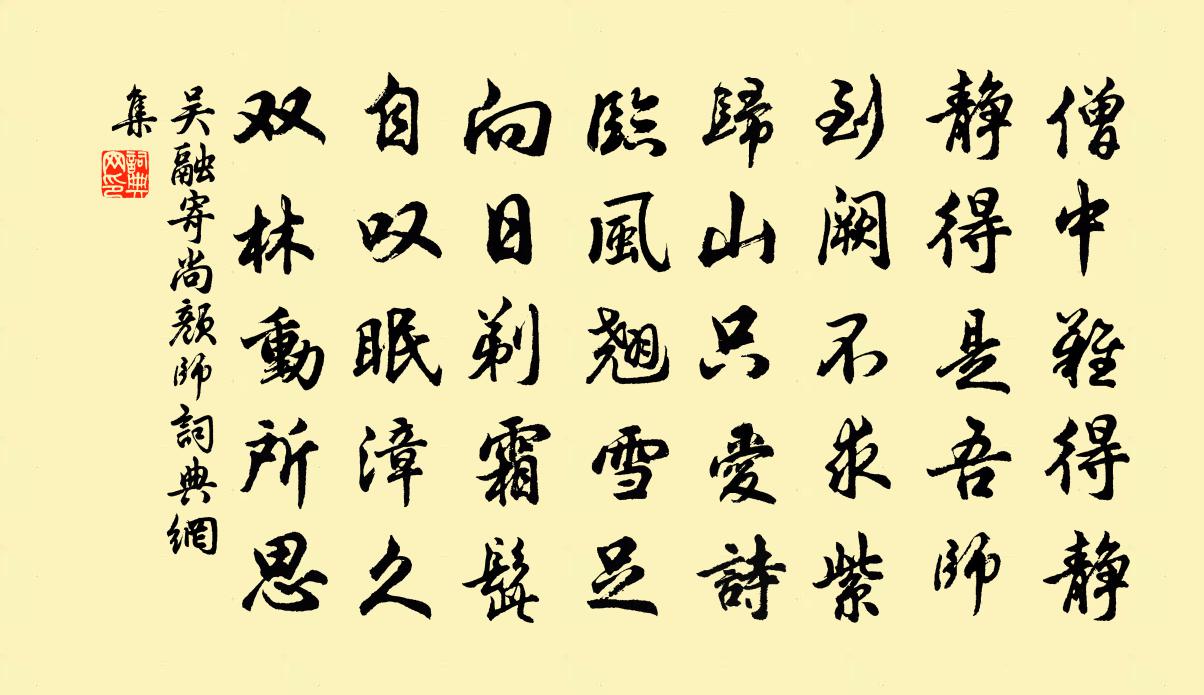 僧中難得静
静得是吾師
到闕不求紫
歸山只愛詩
臨風翹雪足
向日剃霜髭
自叹眠漳久
双林動所思
吴融寄尚顔師詞典網
集
詞典网印